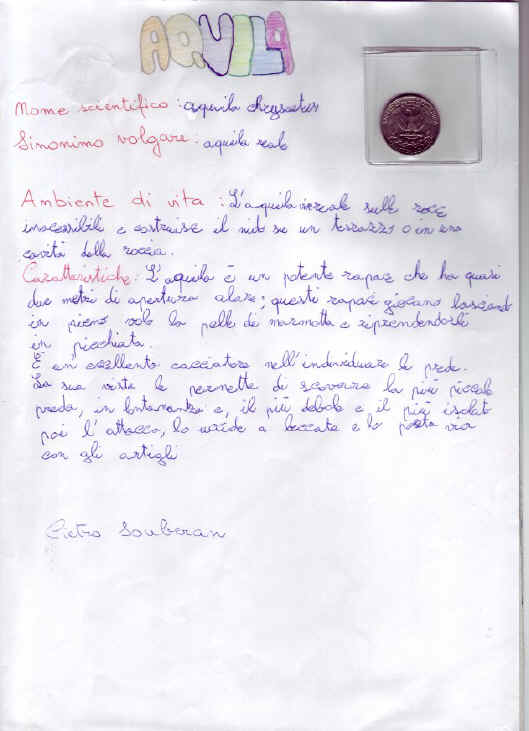 AQUILA
Nome scientifico : aquila chrysaetos
Sinonimo volgare : aquila reale
Ambiente di vita : L'aquila reale sulle roce
inacessibili e costruise il nido su un terrazzo o in una
cavità della roccia.
Caratteristiche : L'aquila è un potente rapace che ha quasi
due metri di apertura alare; questi rapaci giocano lasciando
in pieno volo la pelle di marmotta e riprendendola
in picchiata.
È un'ecellente cacciatore nell'individuare le prede.
La sua vista le permette di scovare la più piccola
preda, in lontananza e, il più debole e il più isolato
poi l'attacco, lo uccide a beccate e lo porta via
con gli artigli
Pietro Souberan